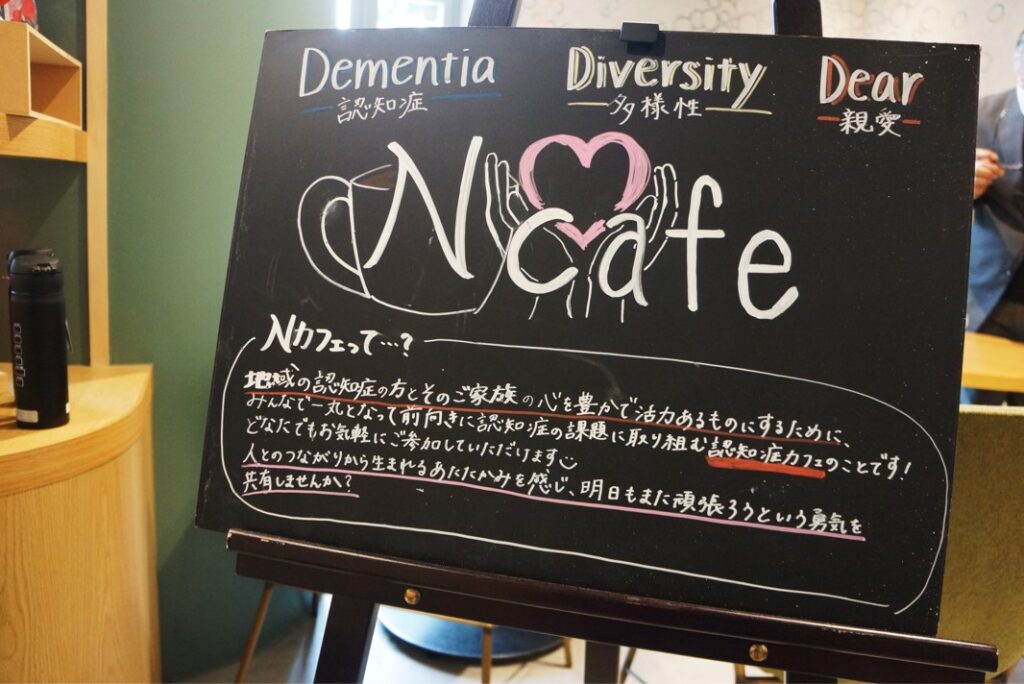 Dementia
認知症
Diversity
多様性
Dear
親愛
N cafe
Nカフェって…?
地域の認知症の方とそのご家族の心を豊かで活力あるものにするために、
みんなで一丸となって前向きに認知症の課題に取り組む認知症カフェのことです!
どなたでもお気軽にご参加していただけます
人とのつながりから生まれるあたたかみを感じ、明日もまた頑張ろうという勇気を
共有しませんか?